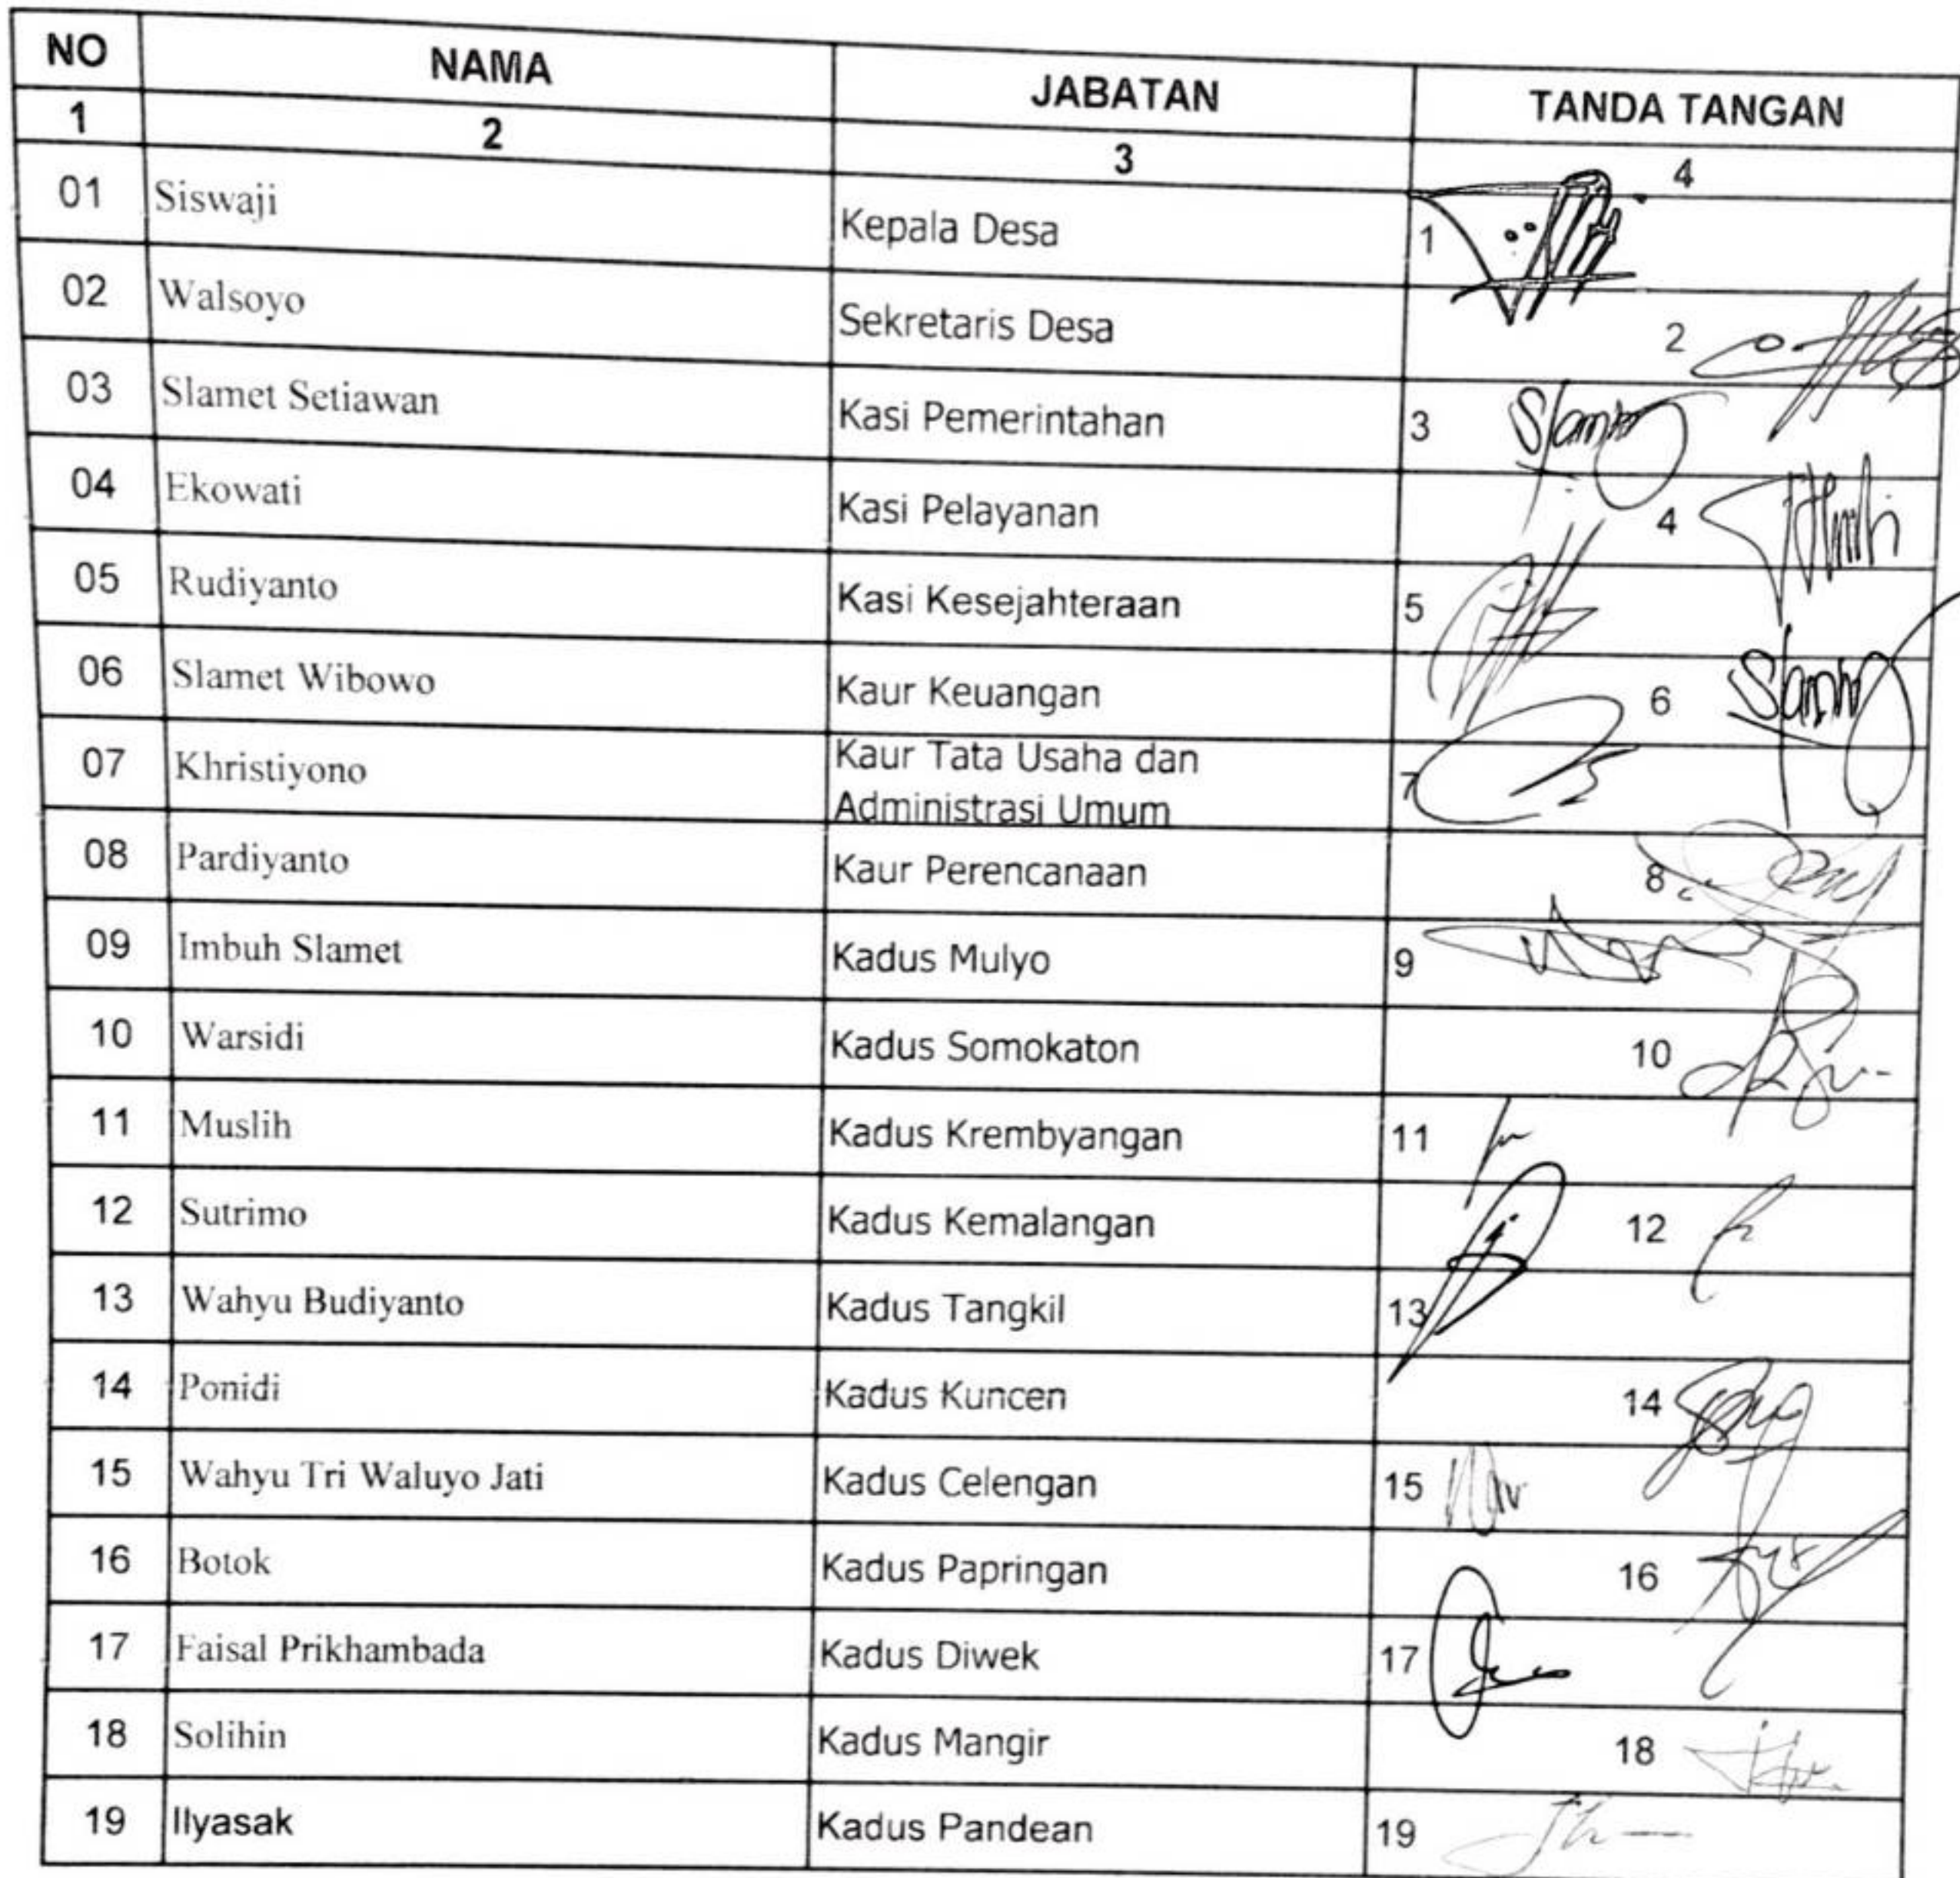 NO NAMA JABATAN TANDA TANGAN
1 2 3 4
01 Siswaji Kepala Desa 1
02 Walsoyo Sekretaris Desa 2
03 Slamet Setiawan Kasi Pemerintahan 3
04 Ekowati Kasi Pelayanan 4
05 Rudiyanto Kasi Kesejahteraan 5
06 Slamet Wibowo Kaur Keuangan 6
07 Khristiyono Kaur Tata Usaha dan
Administrasi Umum 7
08 Pardiyanto Kaur Perencanaan 8
09 Imbuh Slamet Kadus Mulyo 9
10 Warsidi Kadus Somokaton 10
11 Muslih Kadus Krembyangan 11
12 Sutrimo Kadus Kemalangan 12
13 Wahyu Budiyanto Kadus Tangkil 13
14 Ponidi Kadus Kuncen 14
15 Wahyu Tri Waluyo Jati Kadus Celengan 15
16 Botok Kadus Papringan 16
17 Faisal Prikhambada Kadus Diwek 17
18 Solihin Kadus Mangir 18
19 Ilyasak Kadus Pandean 19